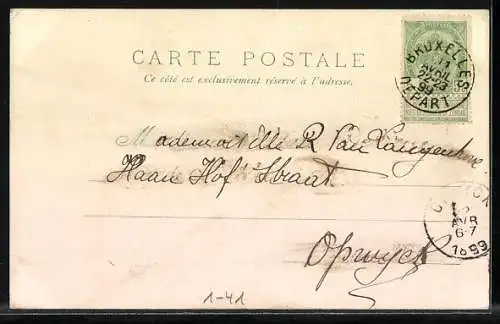 CARTE POSTALE
Ce côté est exclusivement réservé à l'adresse.
BRUXELLES
11
AVRIL
22-23
99
DEPART
Mademoiselle R Van Langenhove
Haan Hof Straat
AVR
6-7
1899
Opwyck
1-41